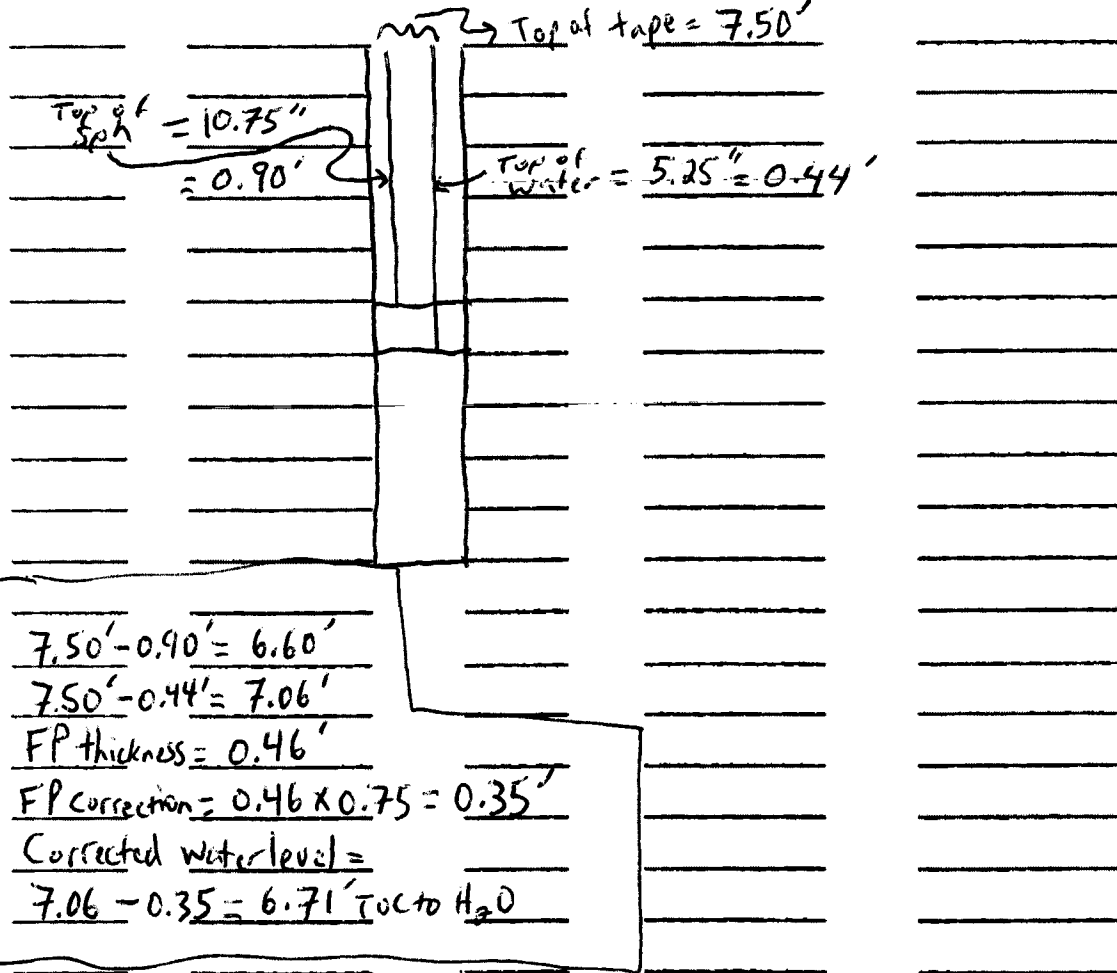 Top of tape = 7.50'
Top of
Sph = 10.75"
= 0.90'
Top of
water = 5.25" = 0.44'
7.50' - 0.90' = 6.60'
7.50' - 0.44' = 7.06'
FP thickness = 0.46'
FP correction = 0.46 x 0.75 = 0.35'
Corrected water level =
7.06 - 0.35 = 6.71' TOC to H₂O